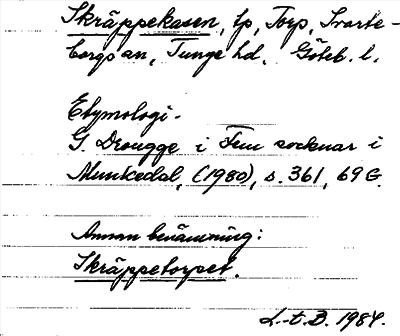 Skräppekasen, tp, Torp, Svarte-
borgs sn, Tunge hd, Göteb. l.
Etymologi.
G. Drougge i Fem socknar i
Munkedal, (1980), s. 361, 69 G.
Annan benämning:
Skräppetorpet.
L-t. B. 1984.